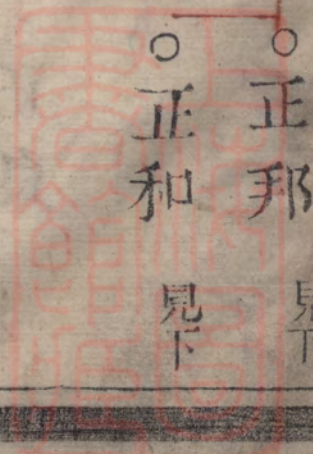 ○正邦 見下
○正和 見下